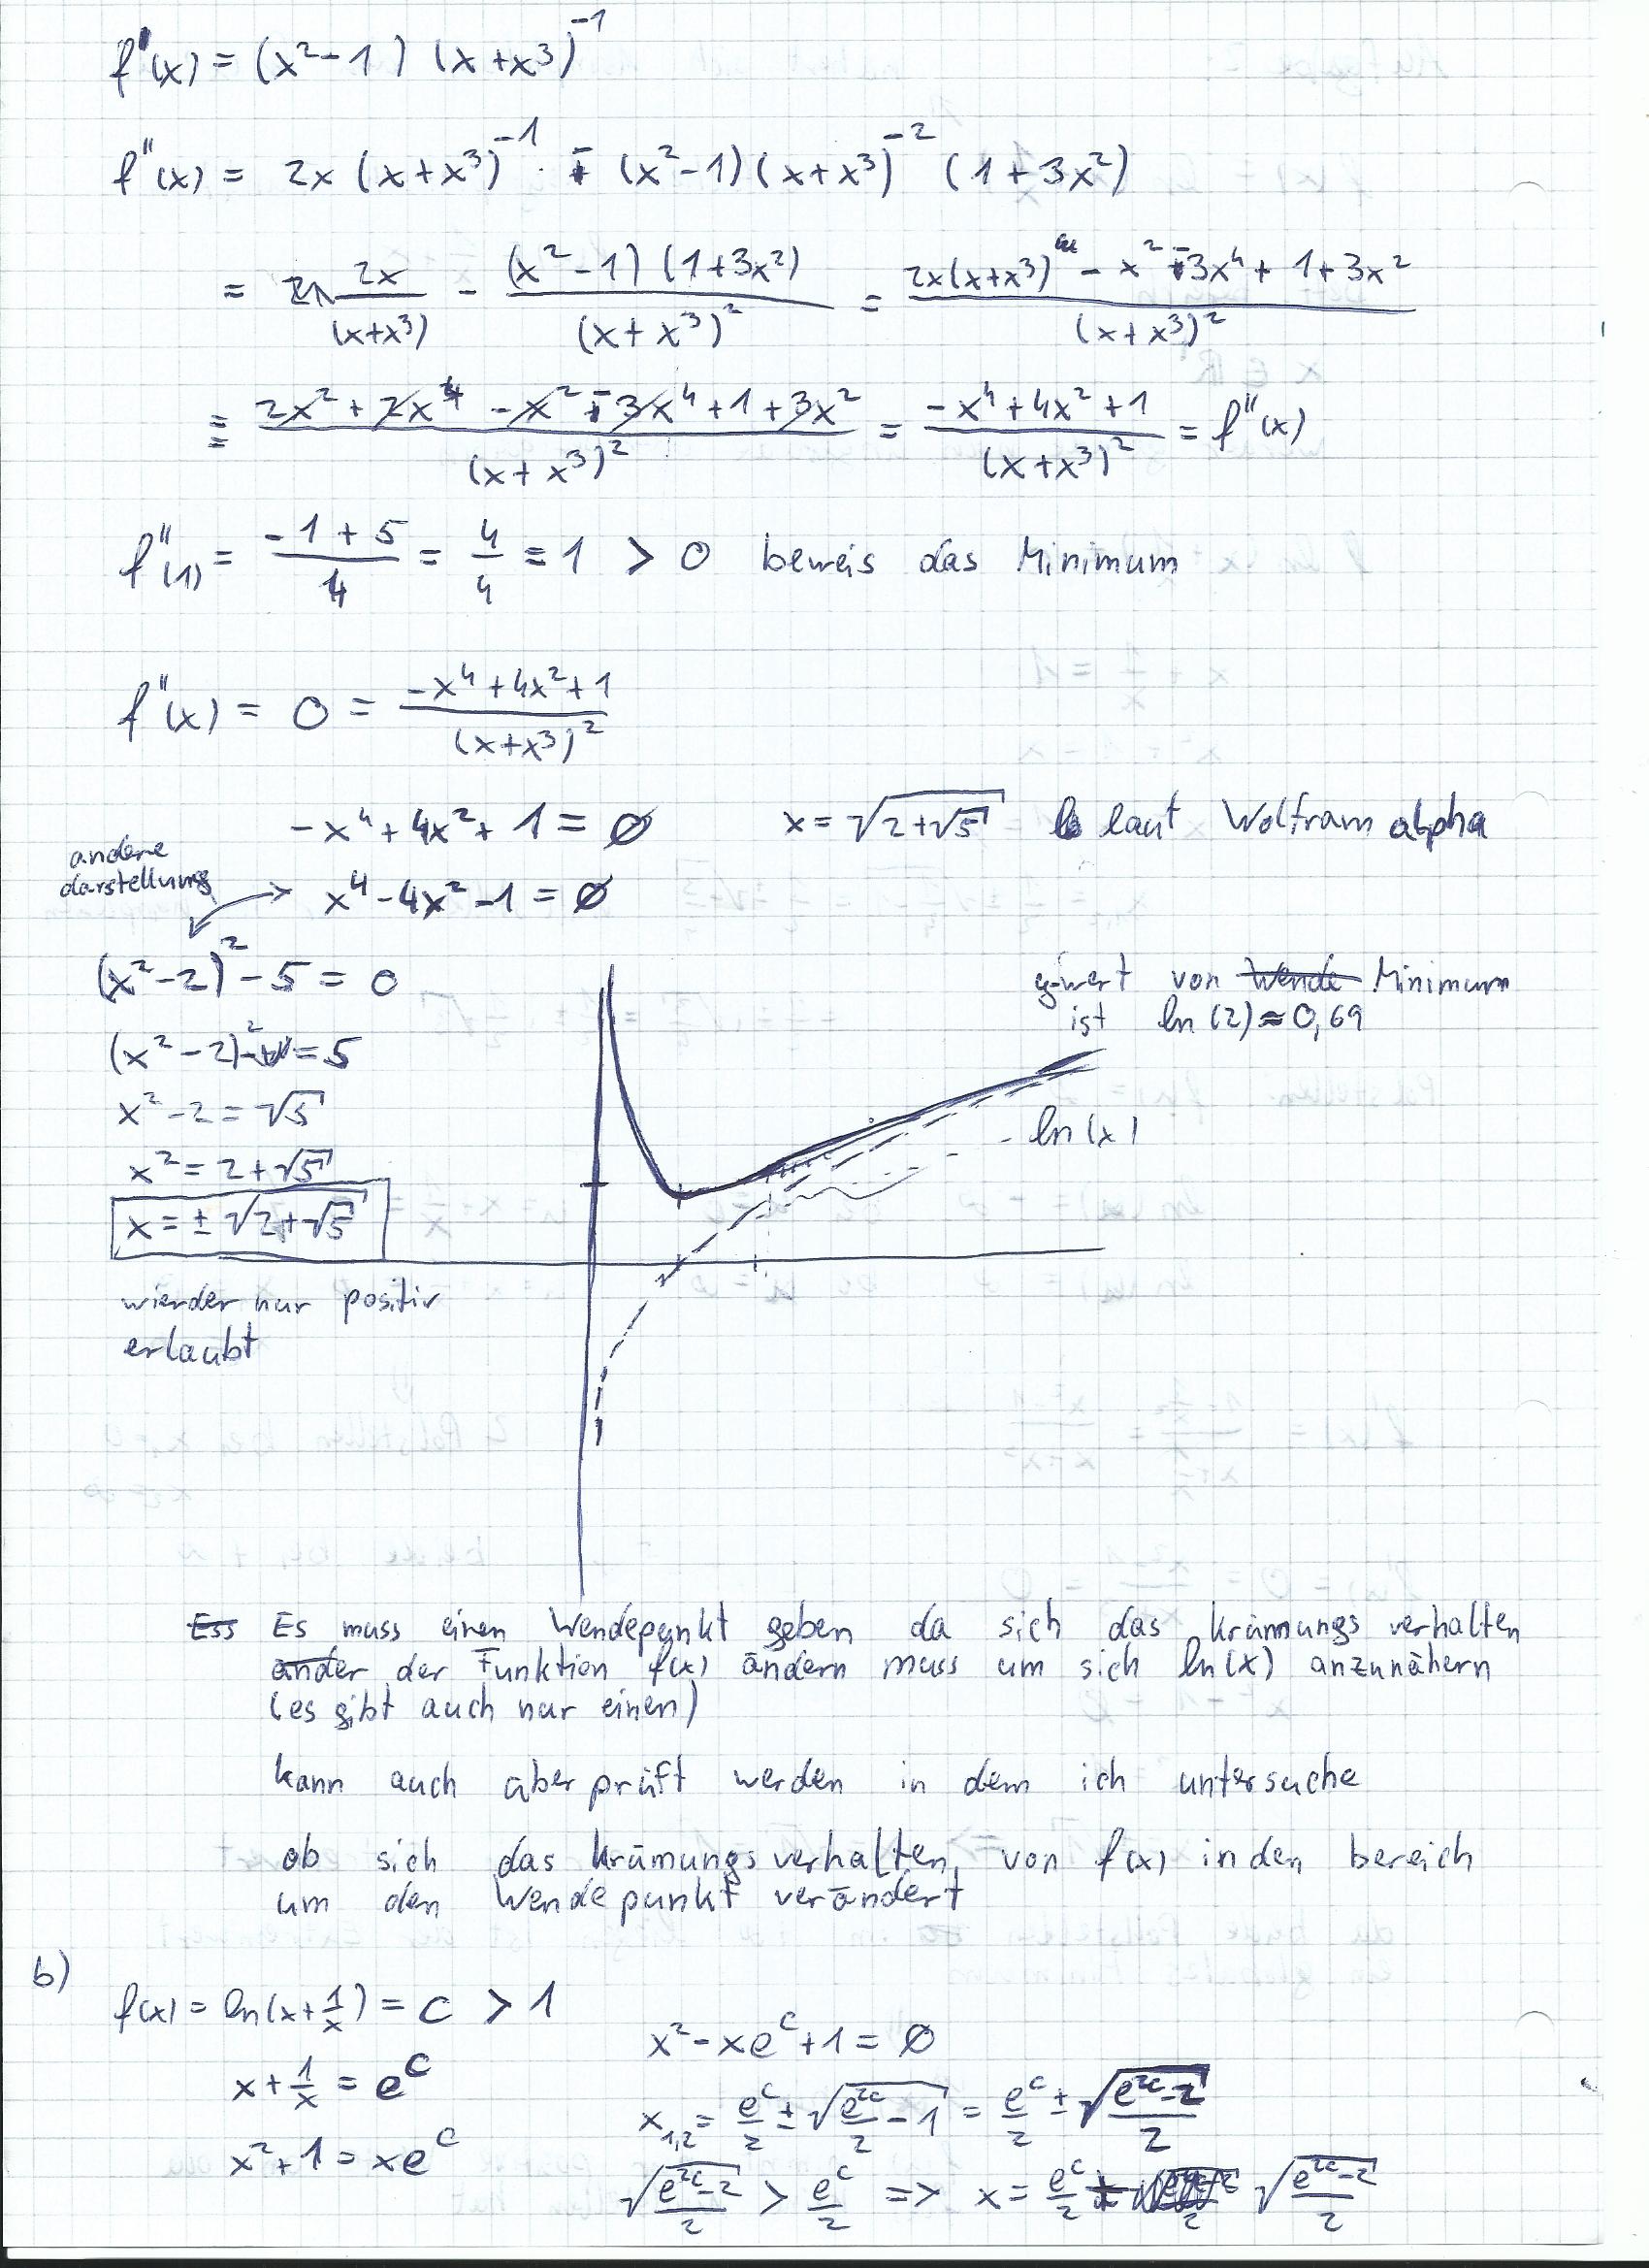 f'(x) = (x²-1) (x+x³)⁻¹
f''(x) = 2x (x+x³)⁻¹ · - (x²-1)(x+x³)⁻² (1+3x²)
= 2x/(x+x³) - (x²-1)(1+3x²)/(x+x³)² = (2x(x+x³) - x² - 3x⁴ + 1 + 3x²)/(x+x³)²
= (2x² + 2x⁴ - x² - 3x⁴ + 1 + 3x²)/(x+x³)² = (-x⁴+4x²+1)/(x+x³)² = f''(x)
f''(1) = (-1+5)/4 = 4/4 = 1 > 0 beweis das Minimum
f''(x) = 0 = (-x⁴+4x²+1)/(x+x³)²
-x⁴+4x²+1 = 0 x = √(2+√5) laut Wolfram alpha
andere
darstellung
x⁴-4x²-1 = 0
(x²-2)²-5 = 0
(x²-2)² = 5
x²-2 = √5
x² = 2+√5
x = ± √(2+√5)
wierder nur positiv
erlaubt
y-wert von Wende Minimum
ist ln(2) ≈ 0,69
ln(x)
Ess Es muss einen Wendepunkt geben da sich das krümungs verhalten
änder der Funktion f(x) ändern muss um sich ln(x) anzunähern
(es gibt auch nur einen)
kann auch überprüft werden in dem ich untersuche
ob sich das krümungsverhalten von f(x) in den bereich
um den Wendepunkt verändert
b)
f(x) = ln(x+1/x) = c > 1
x + 1/x = e^c
x²+1 = xe^c
x²-xe^c+1 = 0
x₁,₂ = e^c/2 ± √(e^2c/2 - 1) = e^c/2 ± √(e^2c-2)/2
√(e^2c-2)/2 > e^c/2 => x = e^c/2 + √(e^2c-2)/2